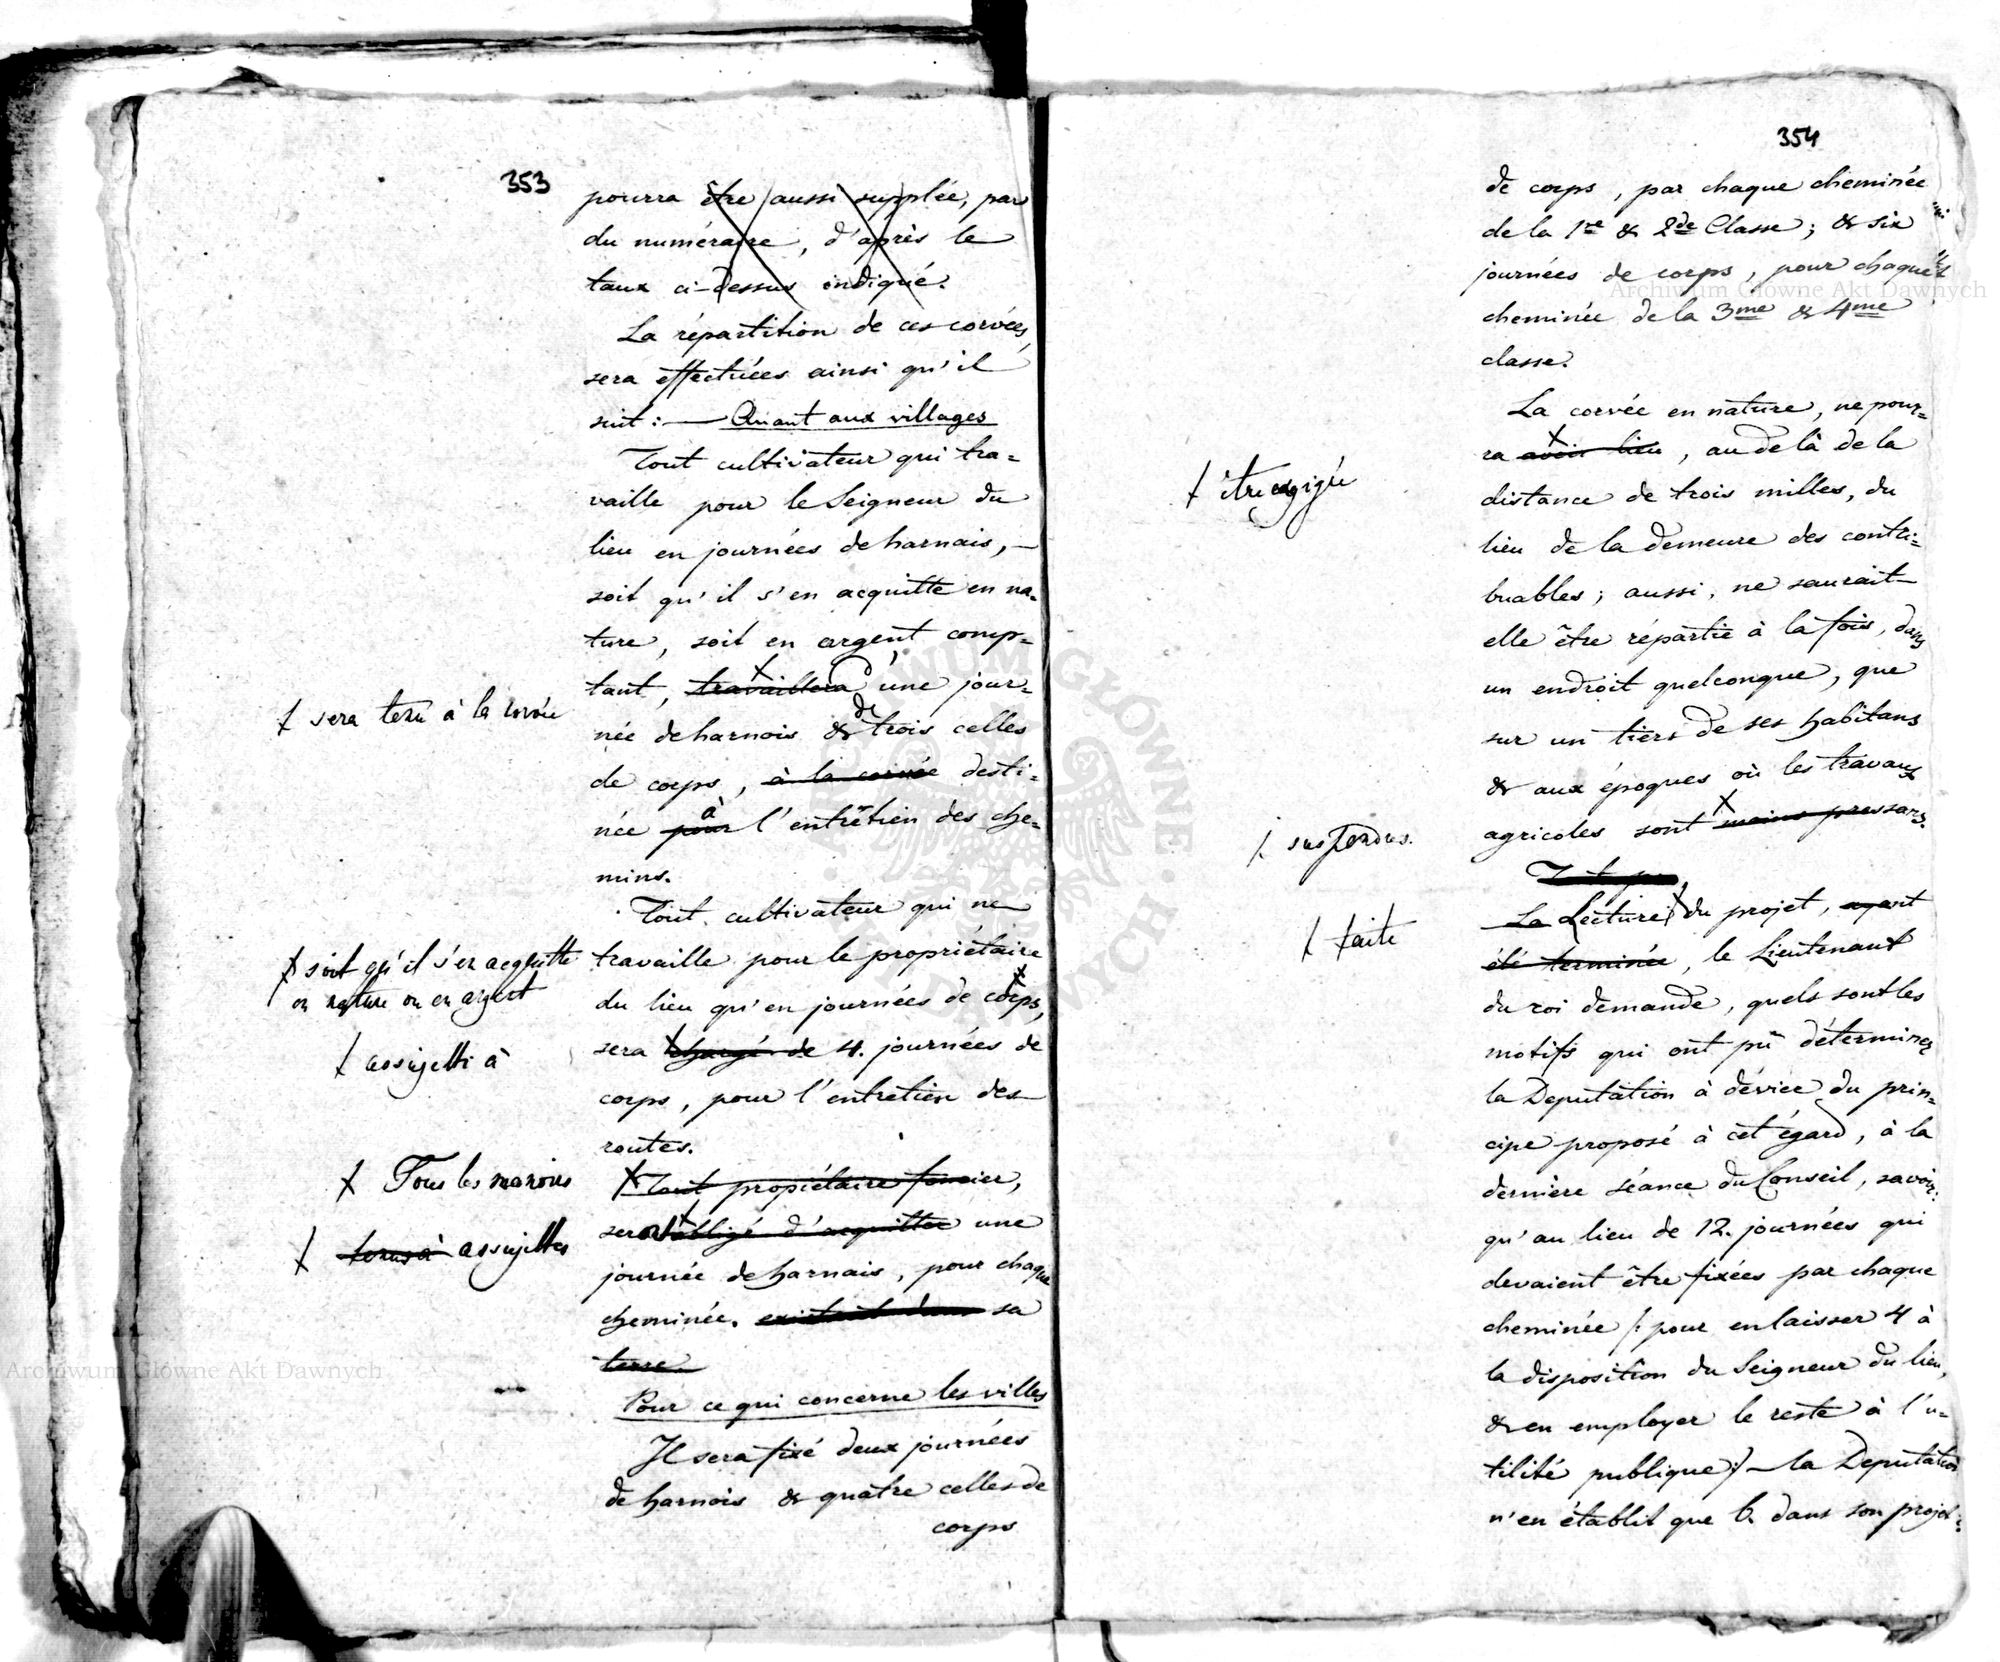 353
pourra être aussi supplée, par
du numéraire, d'après le
taux ci-dessus indiqué.
La répartition de ces corvées,
sera effectuées ainsi qu'il
suit : — Quant aux villages
Tout cultivateur qui tra=
vaille pour le Seigneur du
lieu en journées de harnais, —
soit qu'il s'en acquitte en na=
ture, soit en argent comp=
tant, travaillera d'une jour=
ł sera tenu à la corvée
née de harnois & de trois celles
de corps, à la corvée desti=
née pour à l'entrêtien des che=
mins.
Tout cultivateur qui ne
travaille pour le propriétaire
ł soit qu'il s'en acquitte
en nature ou en argent
du lieu qu'en journées de corps,
sera chargé de 4. journées de
ł assujetti à
corps, pour l'entretien des
routes.
ł Tous les manoirs
Tout propiétaire foncier,
seront obligé d'acquitter une
ł tenus à assujettes
journée de harnais, pour chaque
cheminée. existait dans sa
terre.
Pour ce qui concerne les villes
Il sera fixé deux journées
de harnois & quatre celles de
corps
354
de corps, par chaque cheminée
de la 1re & 2de Classe; & six
journées de corps, pour chaque
cheminée de la 3me & 4me
classe.
La corvée en nature, ne pour=
ra avoir lieu, au delà de la
ł être exigée
distance de trois milles, du
lieu de la demeure des contri=
buables; aussi, ne saurait—
elle être répartie à la fois, dans
un endroit quelconque, que
sur un tiers de ses habitans
& aux époques où les travaux
agricoles sont moins pressans.
ł suspendus.
La Lecture du projet, ayant
ł faite
été terminée, le Lieutenant
du roi demande, quels sont les
motifs qui ont pû déterminer
la Deputation à dévier du prin=
cipe proposé à cet égard, à la
dernière séance du Conseil, savoir:
qu'au lieu de 12. journées qui
devaient être fixées par chaque
cheminée /: pour en laisser 4 à
la disposition du Seigneur du lieu,
& en employer le reste à l'u=
tilité publique :/ — la Deputation
n'en établit que 6. dans son projet:
Archiwum Główne Akt Dawnych
Archiwum Główne Akt Dawnych
ARCHIWUM GŁÓWNE · AKT DAWNYCH ·